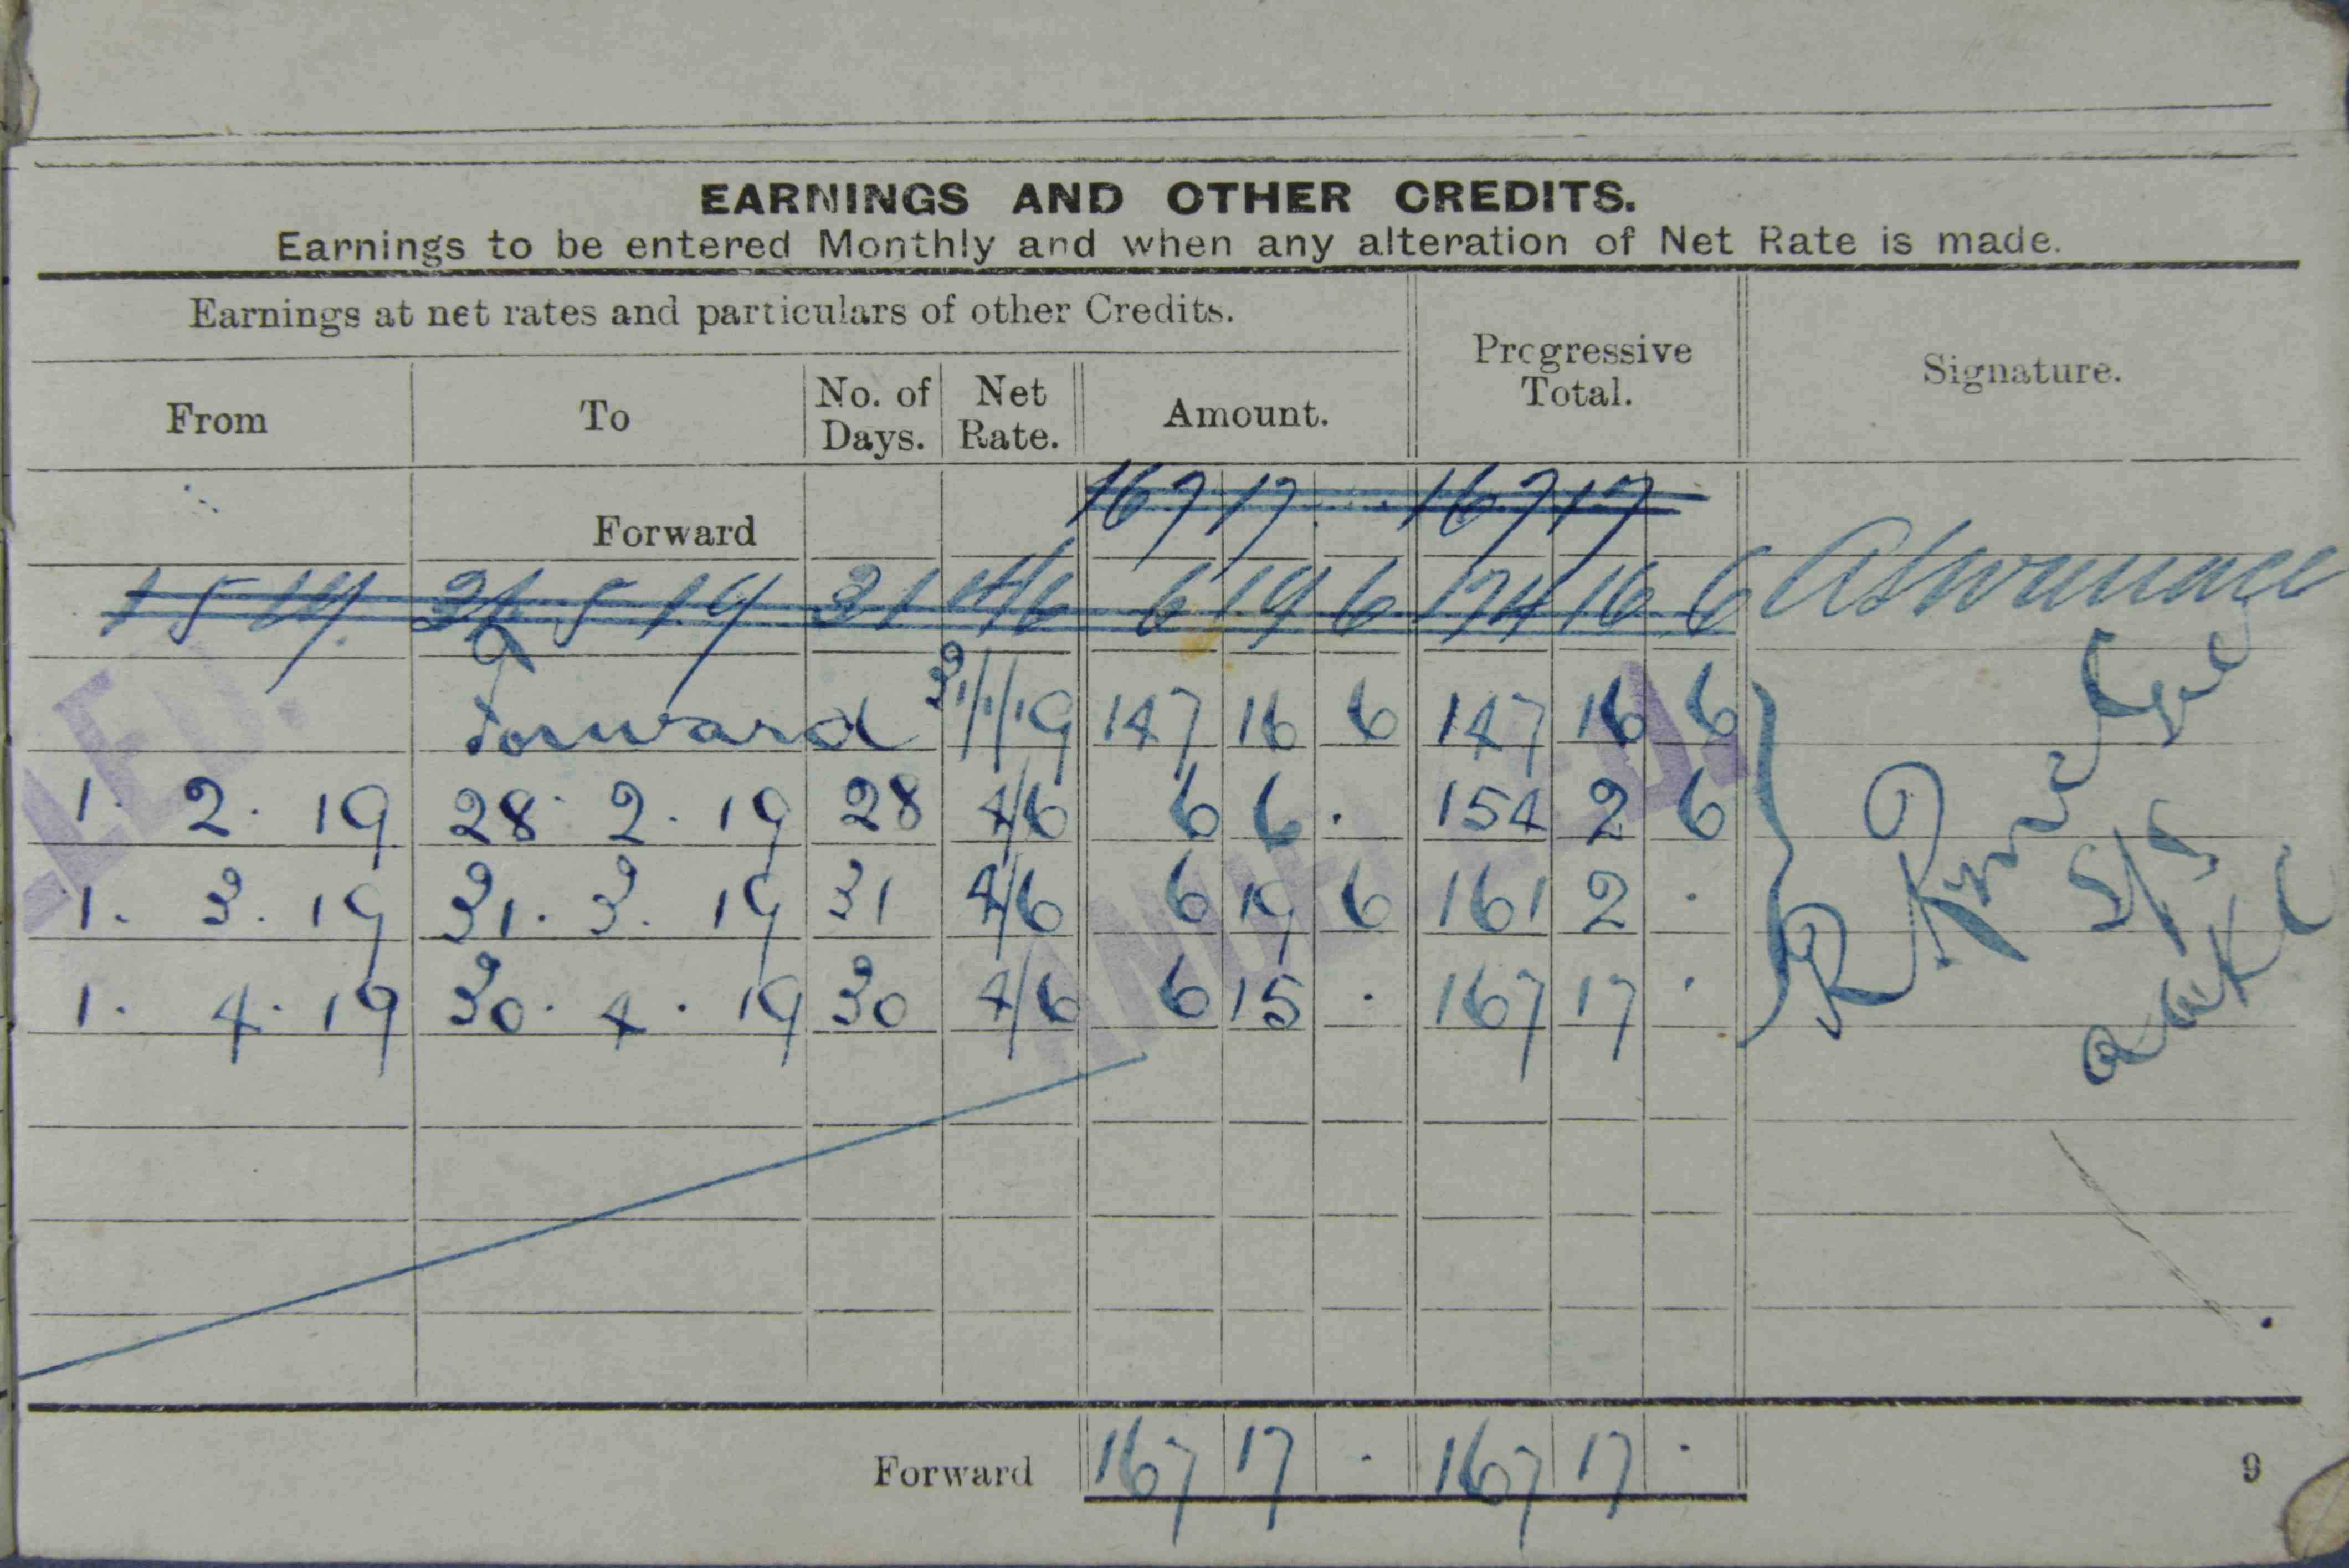 EARNINGS AND OTHER CREDITS.
Earnings to be entered Monthly and when any alteration of Net Rate is made.
Earnings at net rates and particulars of other Credits.
Progressive Total.
Signature.
From To No. of Days. Net Rate. Amount.
Forward 167 17 . 167 17
1 5 19 31 5 19 31 4/6 6 19 6 174 16 6
Forward 31/1/19 147 16 6 147 16 6
1. 2. 19 28. 2. 19 28 4/6 6 6 . 154 2 6
1. 3. 19 31. 3. 19 31 4/6 6 19 6 161 2 .
1. 4. 19 30. 4. 19 30 4/6 6 15 . 167 17 .
Forward 167 17 . 167 17 .
9